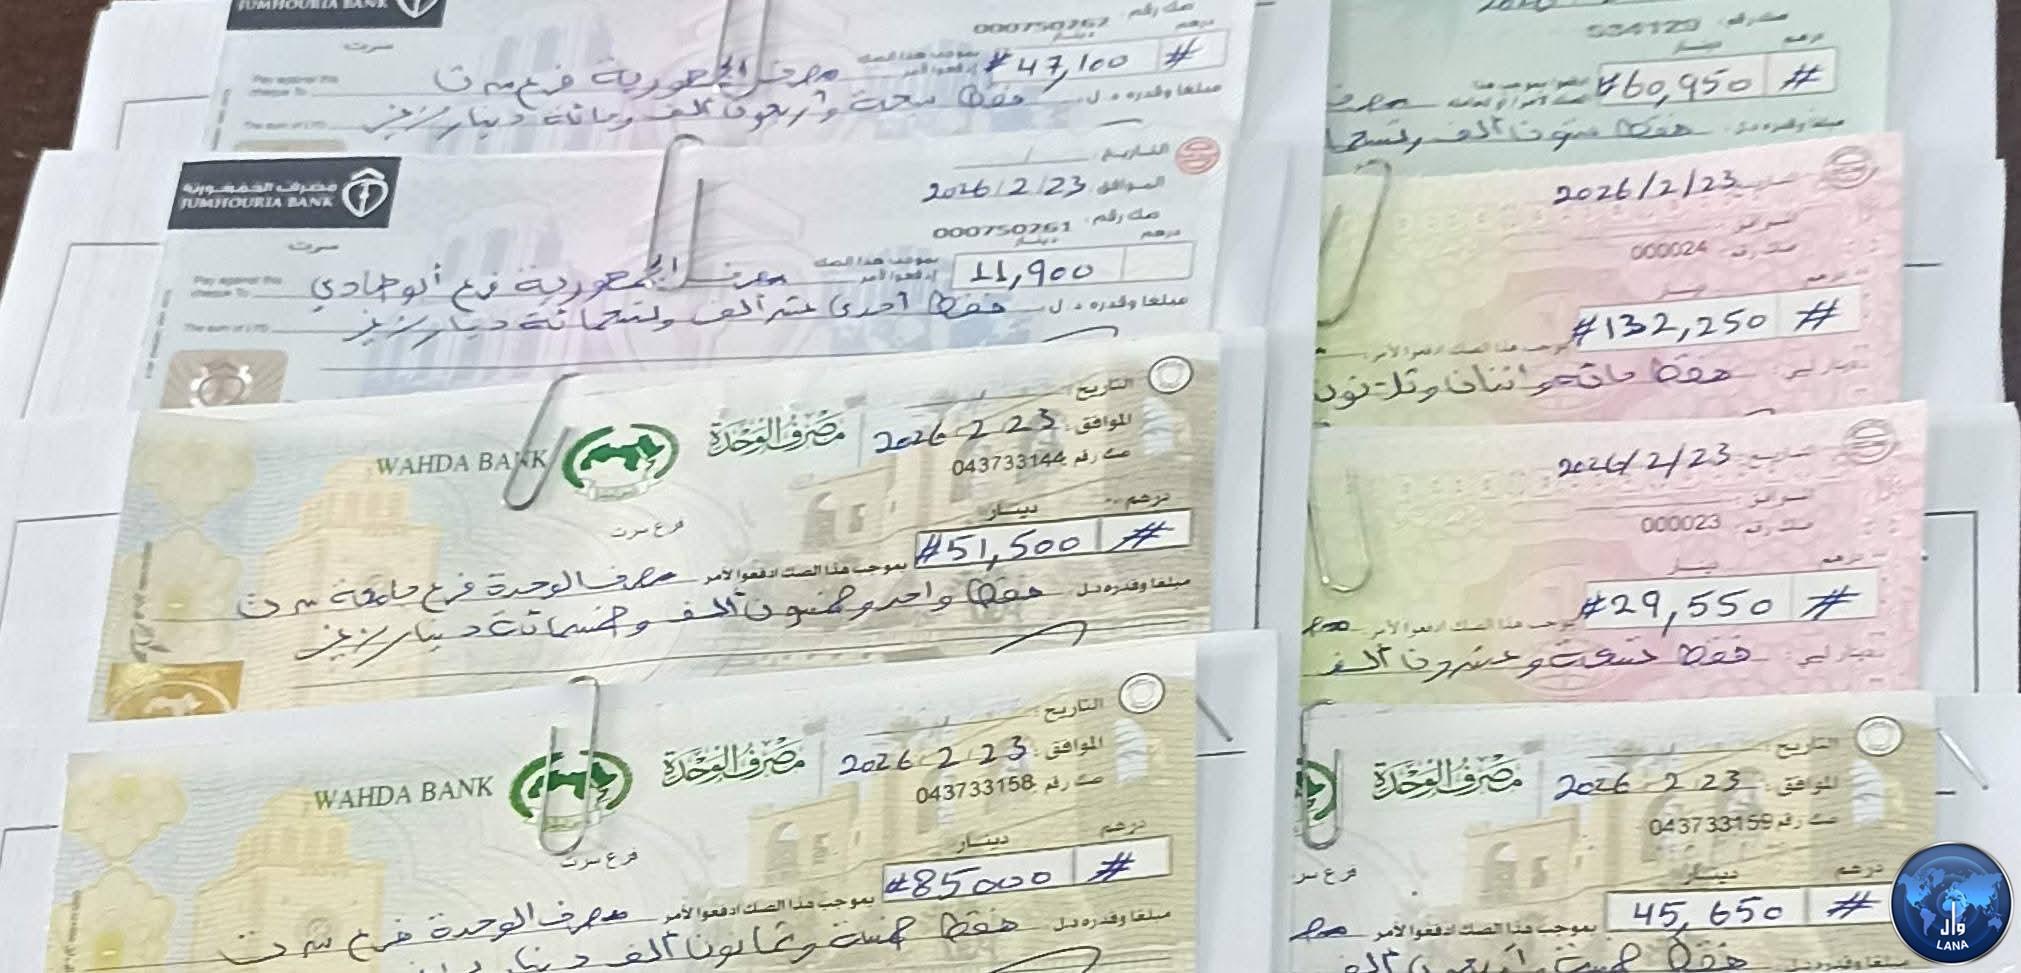 JUMHOURIA BANK
سرت
صك رقم
000750262
درهم
دينار
بموجب هذا الصك إدفعوا لأمر
#47,100 #
مصرف الجمهورية فرع سرت
Pay against this cheque To
مبلغا وقدره د.ل
فقط سبعة وأربعون ألف ومائة دينار
The sum of LYD
مصرف الجمهورية
JUMHOURIA BANK
سرت
التاريخ
الموافق 2026/2/23
صك رقم
000750261
درهم
دينار
11,900
بموجب هذا الصك إدفعوا لأمر
مصرف الجمهورية فرع أبوهادي
Pay against this cheque To
مبلغا وقدره د.ل
فقط أحدى عشر ألف وتسعمائة دينار
The sum of LYD
WAHDA BANK
مصرف الوحدة
التاريخ:
الموافق: 2026 2 23
صك رقم 043733144
فرع سرت
درهم
دينار
#51,500 #
بموجب هذا الصك ادفعوا لأمر مصرف الوحدة فرع جامعة سرت
مبلغا وقدره د.ل فقط واحد وخمسون ألف وخمسمائة دينار
WAHDA BANK
مصرف الوحدة
التاريخ:
الموافق: 2026 2 23
صك رقم 043733158
فرع سرت
درهم
دينار
#85000 #
بموجب هذا الصك ادفعوا لأمر مصرف الوحدة فرع سرت
مبلغا وقدره د.ل فقط خمسة وثمانون ألف دينار
صك رقم
534129
درهم
دينار
#60,950 #
مصرف
مبلغا وقدره د.ل فقط ستون ألف
2026/2/23
صك رقم 000024
درهم
دينار
#132,250 #
بموجب هذا الصك ادفعوا لأمر
فقط مائة واثنان وثلاثون
2026/2/23
صك رقم 000023
درهم
دينار
#29,550 #
بموجب هذا الصك ادفعوا لأمر
فقط تسعة وعشرون ألف
مصرف الوحدة
التاريخ:
الموافق: 2026 2 23
صك رقم 043733159
فرع سر
درهم
دينار
45,650 #
بموجب هذا الصك ادفعوا لأمر
مبلغا وقدره د.ل فقط خمسة
وال
LANA